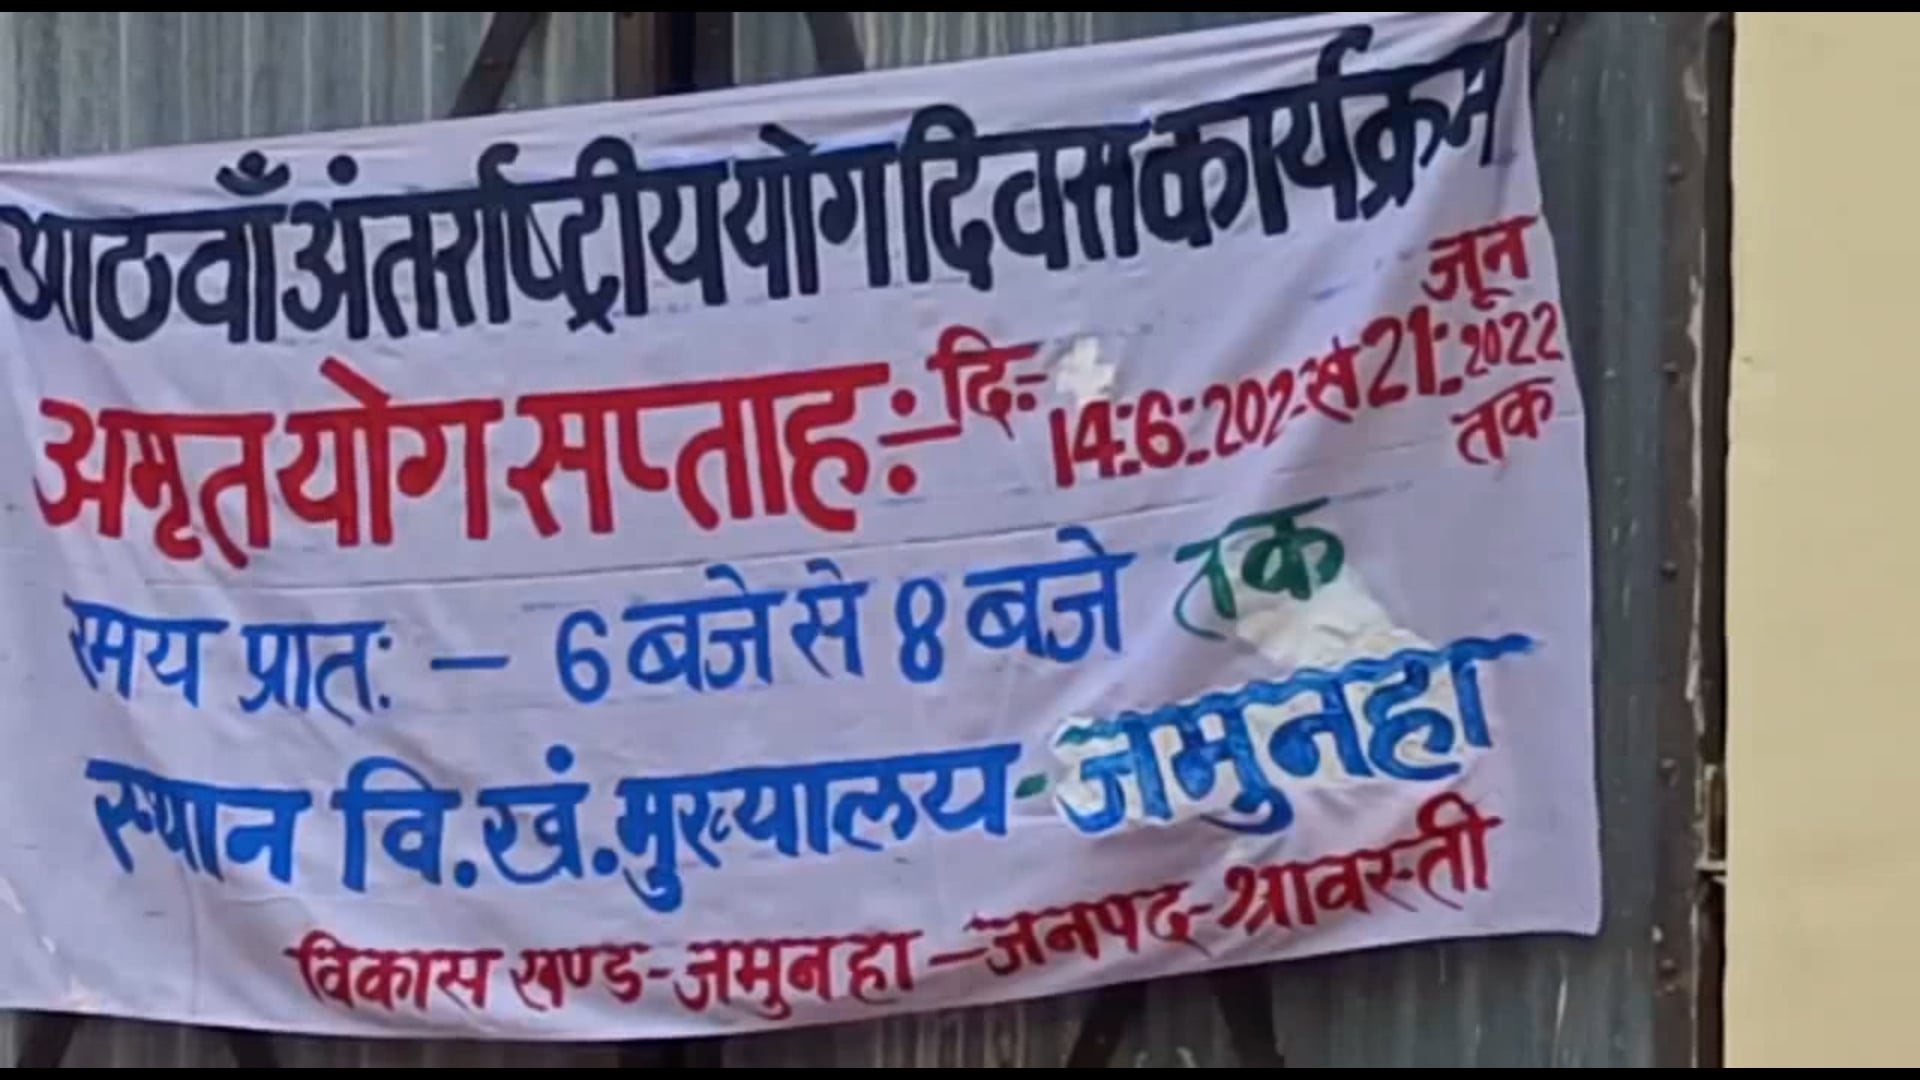 आठवाँ अंतर्राष्ट्रीय योग दिवस कार्यक्रम
अमृत योग सप्ताह :- दि:- 14:6:202 से 21: जून 2022 तक
समय प्रात: - 6 बजे से 8 बजे तक
स्थान वि.खं.मुख्यालय - जमुनहा
विकास खण्ड - जमुनहा - जनपद - श्रावस्ती